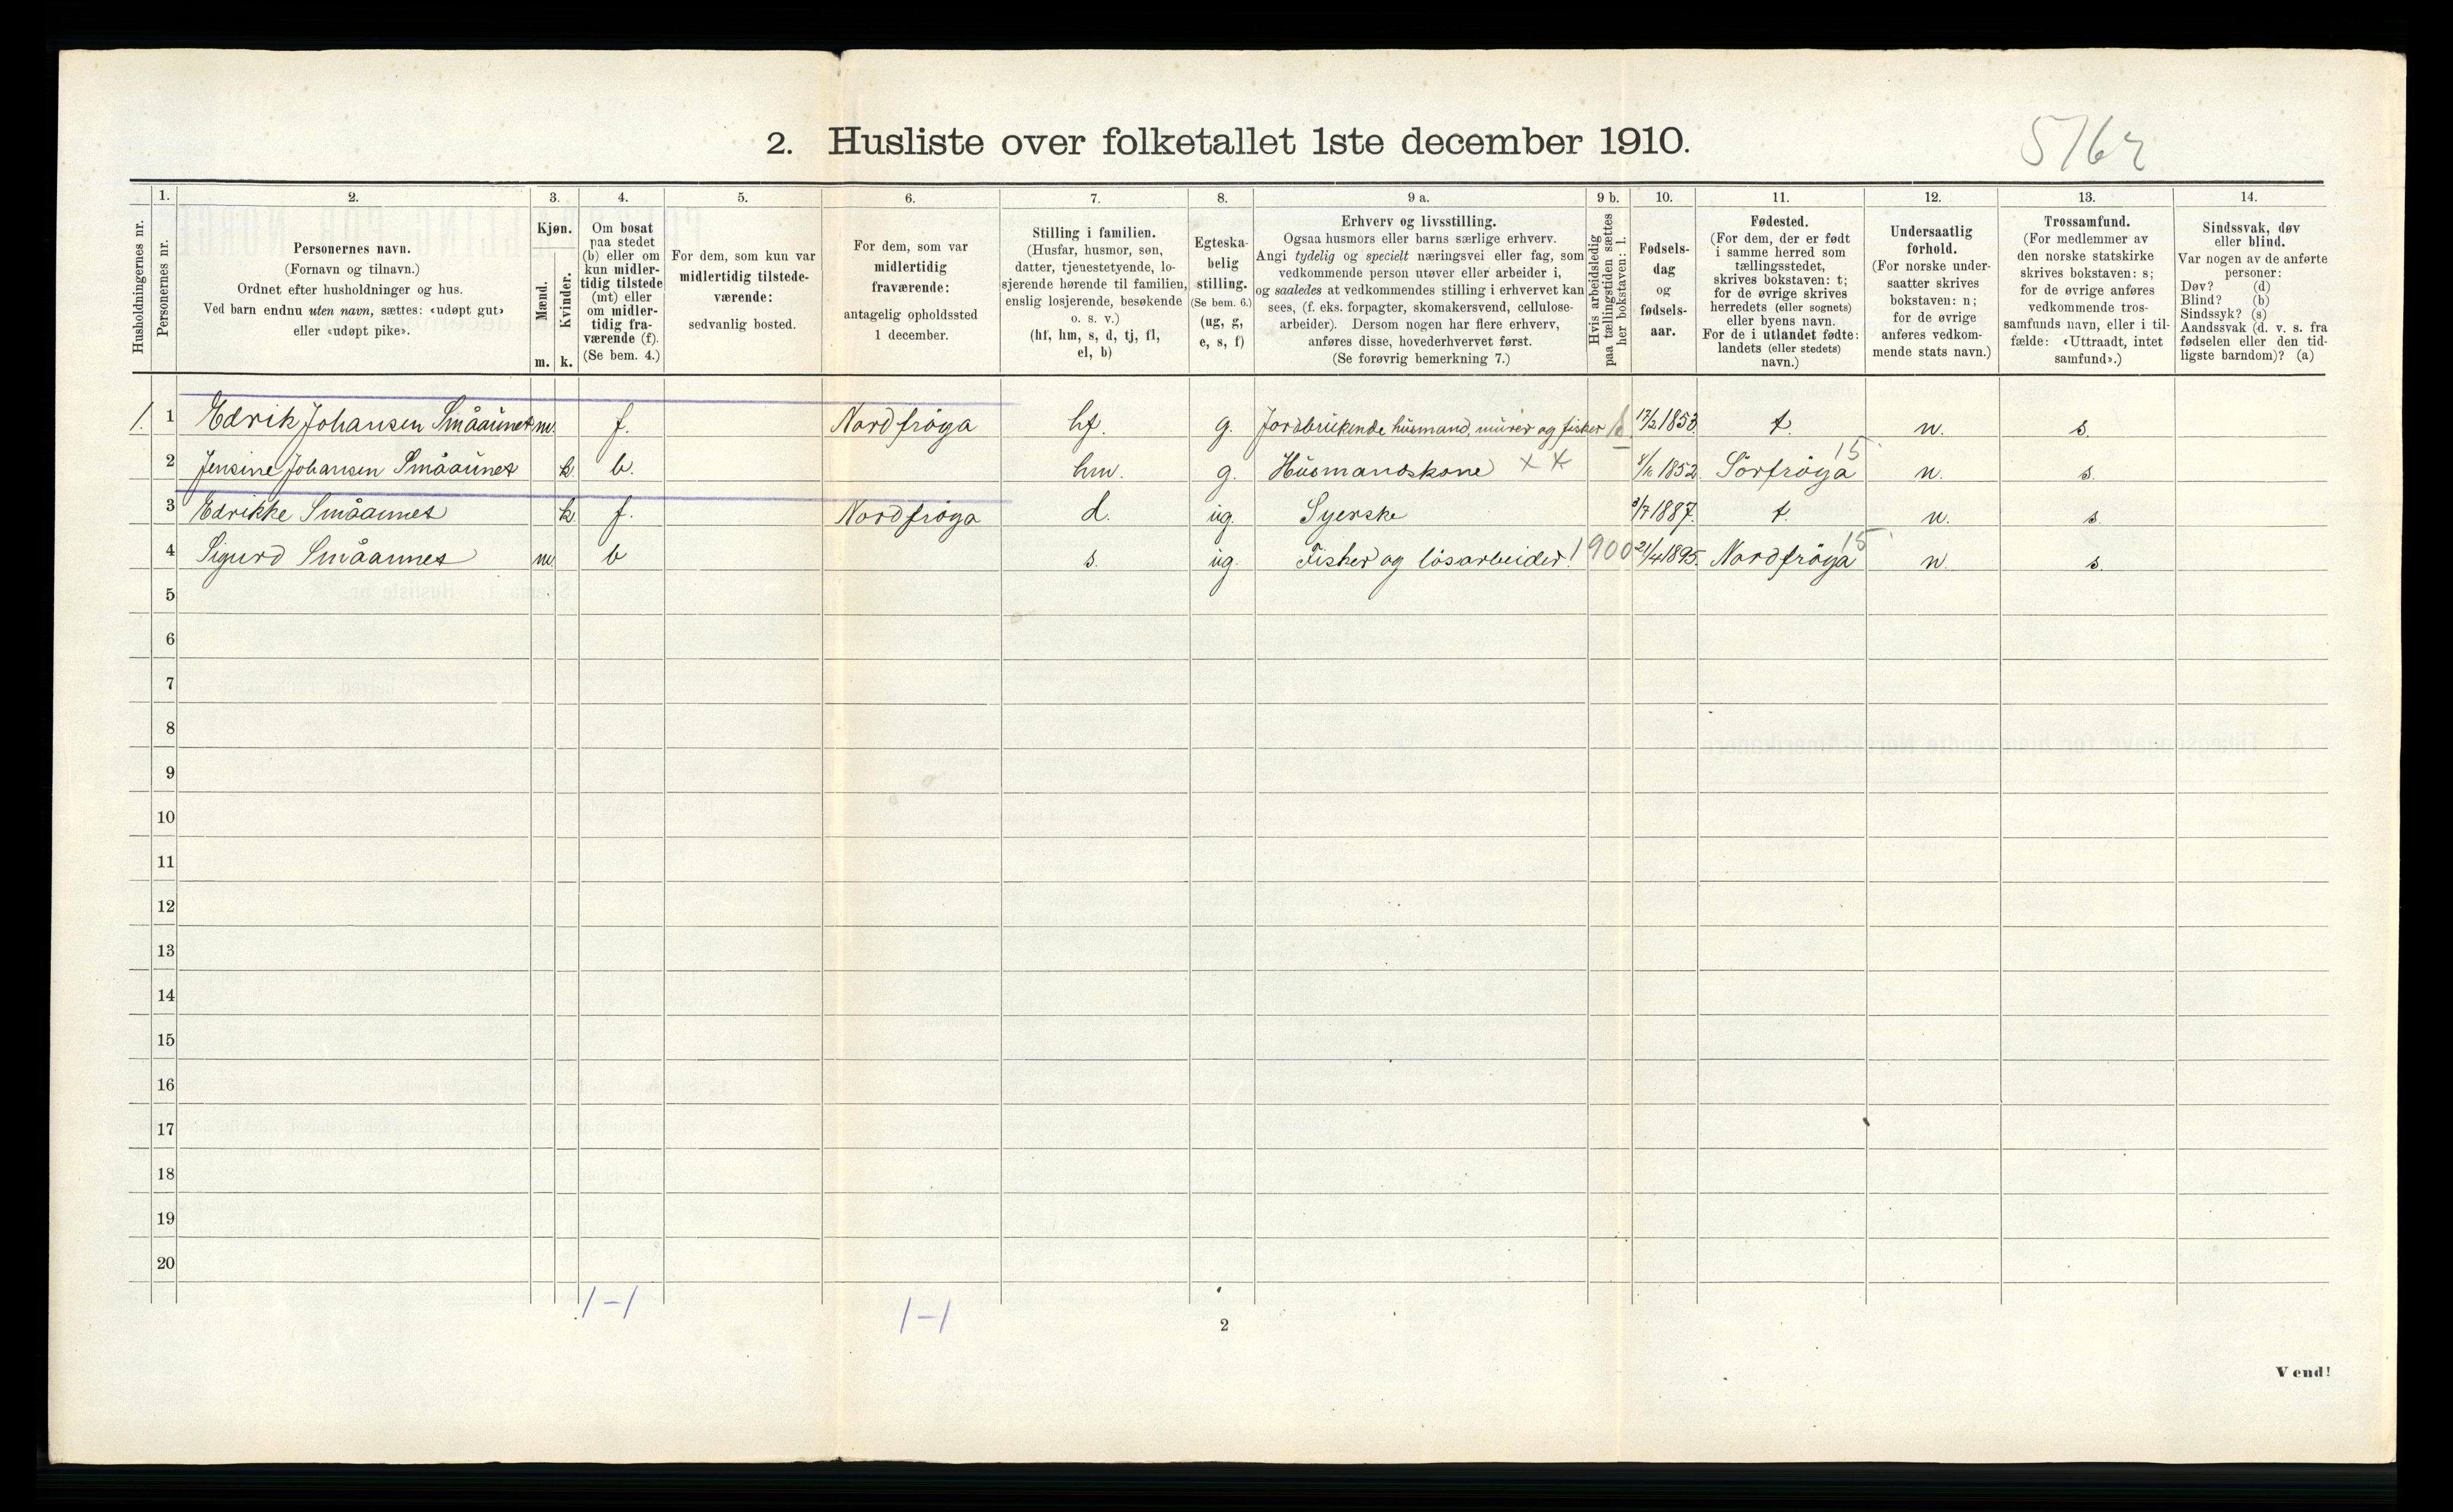 2. Husliste over folketallet 1ste december 1910.
Husholdningernes nr.
1.
Personernes nr.
2.
Personernes navn.
(Fornavn og tilnavn.)
Ordnet efter husholdninger og hus.
Ved barn endnu uten navn, sættes: «udøpt gut»
eller «udøpt pike».
3.
Kjøn.
Mænd.
Kvinder.
m. k.
4.
Om bosat
paa stedet
(b) eller om
kun midler-
tidig tilstede
(mt) eller
om midler-
tidig fra-
værende (f).
(Se bem. 4.)
5.
For dem, som kun var
midlertidig tilstede-
værende:
sedvanlig bosted.
6.
For dem, som var
midlertidig
fraværende:
antagelig opholdssted
1 december.
7.
Stilling i familien.
(Husfar, husmor, søn,
datter, tjenestetyende, lo-
sjerende hørende til familien,
enslig losjerende, besøkende
o. s. v.)
(hf, hm, s, d, tj, fl,
el, b)
8.
Egteska-
belig
stilling.
(Se bem. 6.)
(ug, g,
e, s, f)
9 a.
Erhverv og livsstilling.
Ogsaa husmors eller barns særlige erhverv.
Angi tydelig og specielt næringsvei eller fag, som
vedkommende person utøver eller arbeider i,
og saaledes at vedkommendes stilling i erhvervet kan
sees, (f. eks. forpagter, skomakersvend, cellulose-
arbeider). Dersom nogen har flere erhverv,
anføres disse, hovederhvervet først.
(Se forøvrig bemerkning 7.)
9 b.
Hvis arbeidsledig
paa tællingstiden sættes
her bokstaven: l.
10.
Fødsels-
dag
og
fødsels-
aar.
11.
Fødested.
(For dem, der er født
i samme herred som
tællingsstedet,
skrives bokstaven: t;
for de øvrige skrives
herredets (eller sognets)
eller byens navn.
For de i utlandet fødte:
landets (eller stedets)
navn.)
12.
Undersaatlig
forhold.
(For norske under-
saatter skrives
bokstaven: n;
for de øvrige
anføres vedkom-
mende stats navn.)
13.
Trossamfund.
(For medlemmer av
den norske statskirke
skrives bokstaven: s;
for de øvrige anføres
vedkommende tros-
samfunds navn, eller i til-
fælde: «Uttraadt, intet
samfund».)
14.
Sindssvak, døv
eller blind.
Var nogen av de anførte
personer:
Døv? (d)
Blind? (b)
Sindssyk? (s)
Aandssvak (d. v. s. fra
fødselen eller den tid-
ligste barndom)? (a)
1. 1 Edrik Johansen Smååunet m. f. Nordfröya hf. g. Jordbrukende husmand, murer og fisker 17/2 1853 t. n. s.
15
2 Jensine Johansen Smååunet k. b. hm. g. Husmandskone 1852 Sörfröya n. s.
3 Edrikke Smååunet k. f. Nordfröya d. ug. Syerske 3/7 1887. t. n. s.
15
4 Sigurd Smååunet m. b s. ug. Fisker og lösarbeider. 1900 21/4 1895. Nordfröya n. s.
5
6
7
8
9
10
11
12
13
14
15
16
17
18
19
20
1-1 1-1
2
Vend!